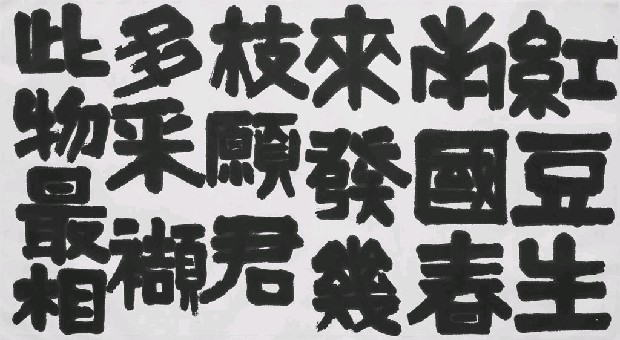 紅豆生
南國春
來發幾
枝願君
多采襭
此物最相